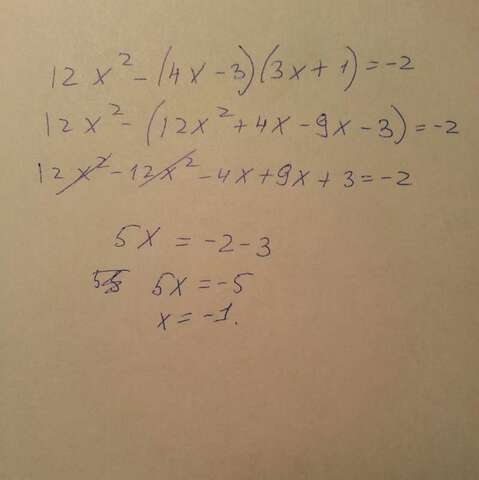 12x² - (4x - 3)(3x + 1) = -2
12x² - (12x² + 4x - 9x - 3) = -2
12x² - 12x² - 4x + 9x + 3 = -2
5x = -2 - 3
5x = -5
x = -1.